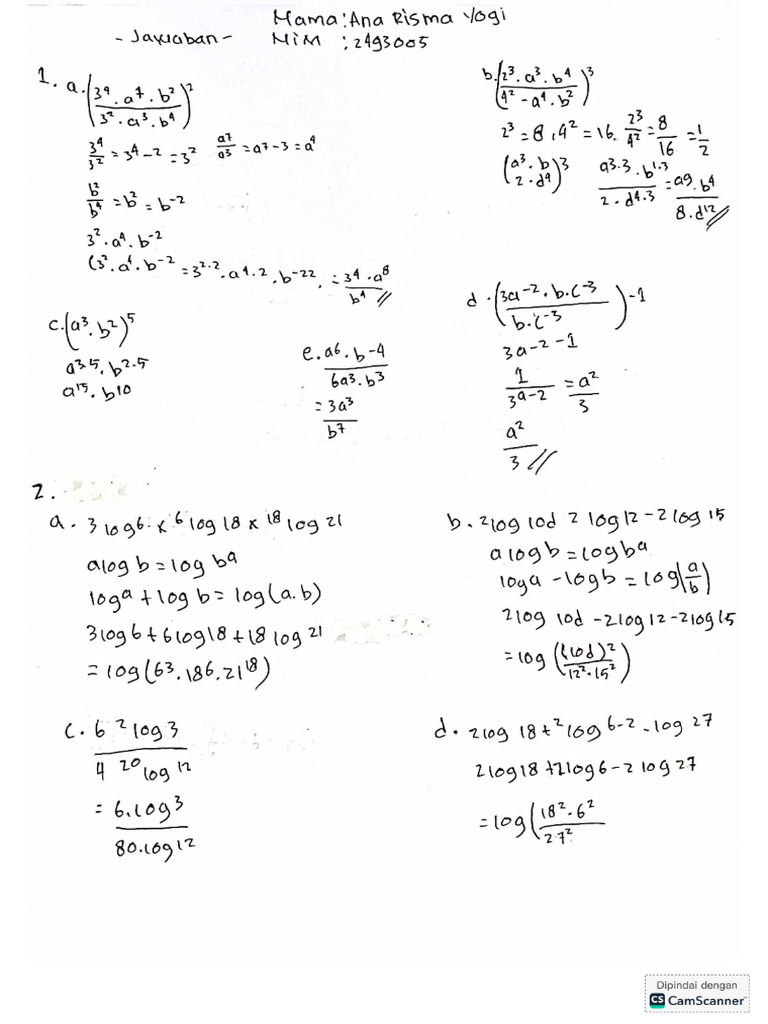 Mama : Ana Risma Yogi
- Jawaban - NiM : 2493005
1. a. (3^4 . a^7 . b^2 / 3^2 . a^3 . b^4)^2
3^4/3^2 = 3^4-2 = 3^2 a7/a3 = a7-3 = a^4
b^2/b^4 = b^2 = b^-2
3^2 . a^4 . b^-2
(3^2 . a^4 . b^-2 = 3^2.2 . a^4.2 . b^-22 . = 3^4 . a^8 / b^4 //
b. (2^3 . a^3 . b^4 / 4^2 - a^4 . b^2)^3
2^3 = 8 , 4^2 = 16. 2^3/4^2 = 8/16 = 1/2
(a^3 . b / 2 . d^4)^3 a3.3 . b^1.3 / 2 . d^4.3 = a9 . b^4 / 8 . d^12 //
c. (a^3 . b^2)^5
a^3.5 . b^2.5
a^15 . b^10
e. a6 . b-4 / 6a3 . b^3
= 3a^3 / b^7
d . (3a^-2 . b . c^-3 / b . c^-3)^-1
3a^-2-1
1 / 3^a-2 = a^2 / 3
a^2 / 3 //
2.
a . 3 log 6 . x ^6 log 18 x ^18 log 21
a log b = log b^a
log a + log b = log (a . b)
3 log 6 + 6 log 18 + 18 log 21
= log (63 . 186 . 21^18)
b . 2 log 10d 2 log 12 - 2 log 15
a log b = log b^a
log a - log b = log (a/b)
2 log 10d - 2 log 12 - 2 log 15
= log ((10d)^2 / 12^2 . 15^2)
c . 6 ^2 log 3 / 4 ^20 log 12
= 6 . log 3 / 80 . log 12
d . 2 log 18 + ^2 log 6-2 - log 27
2 log 18 + 2 log 6 - 2 log 27
= log (18^2 . 6^2 / 27^2
Dipindai dengan
CS CamScanner